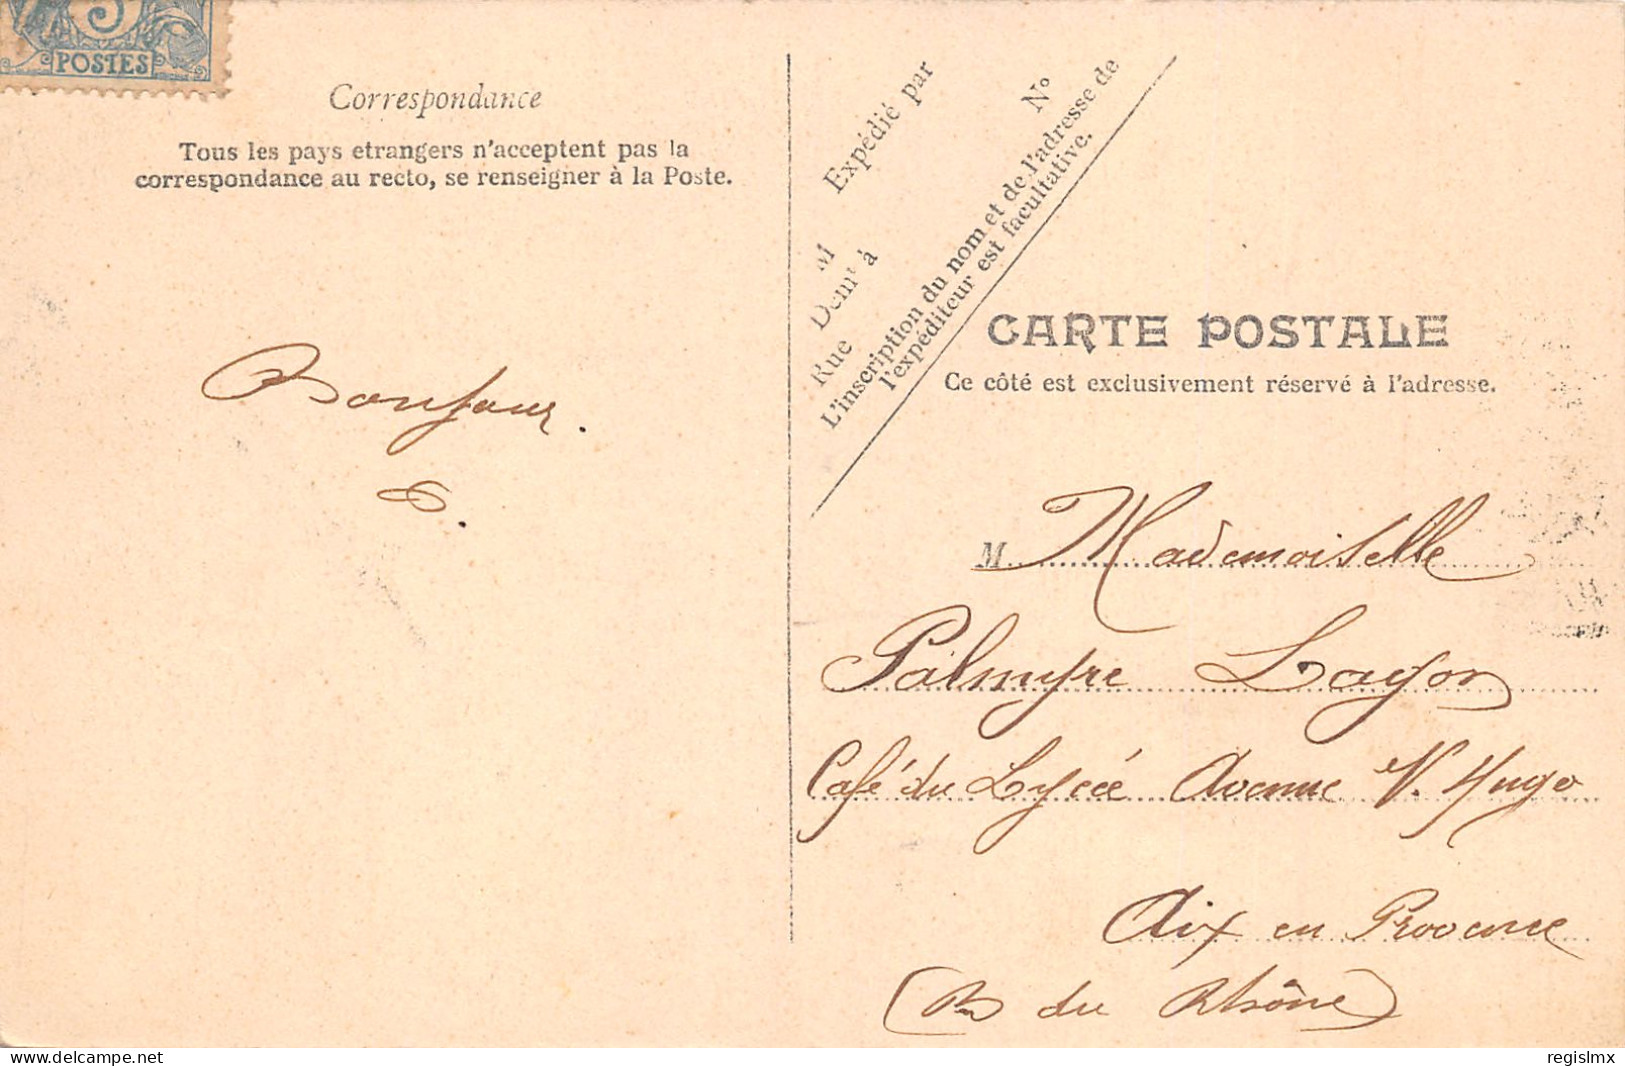 5
POSTES
Correspondance
Tous les pays etrangers n'acceptent pas la
correspondance au recto, se renseigner à la Poste.
Bonjour.
Expédié par
M
Demt à
Rue
N°
L'inscription du nom et de l'adresse de
l'expéditeur est facultative.
CARTE POSTALE
Ce côté est exclusivement réservé à l'adresse.
M Mademoiselle
Palmyre Layon
Café du Lycée Avenue V. Hugo
Aix en Provence
(B du Rhône)
delcampe.net
regislmx